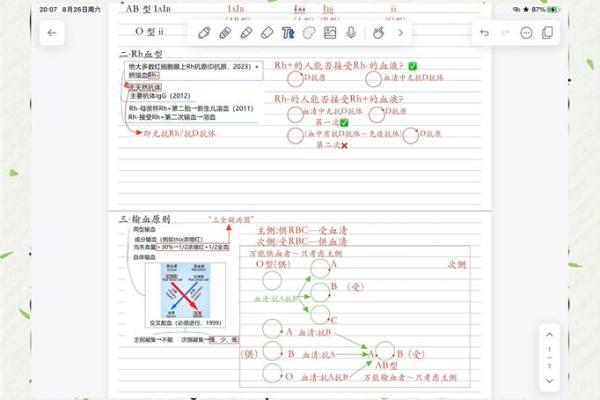 20:07 8月26日周六
87%
AB 型 IAIB IAIB ii
O 型 ii
二·Rh血型
绝大多数红细胞膜上Rh抗原(D抗原，2023)，
无天然抗体
主要抗体IgG（2012）
Rh-母亲怀Rh+第二胎→新生儿溶血（2011）
Rh-接受Rh+第二次输血→溶血
即无抗Rh/抗D抗体
Rh+的人能否接受Rh-的血液？
D抗原 血清中无抗D抗体
Rh-的人能否接受Rh+的血液？
血清中无抗D抗体 D抗原
第一次
(血中有抗D抗体~免疫抗体) D抗原
第二次
三·输血原则
"三全凝汤圆"
同型输血
成分输血
当失血量>30%→1/2浓缩红+1/2全血
自体输血
交叉配血（必须进行，1999）
主侧凝集→不能 次侧凝集→慢、少、低
主侧:供RBC—受血清
次侧:受RBC—供血清
万能供血者~只考虑主侧
O型(供) A 次侧
B (受)
血清:抗A抗B
C
A 血清:抗B
(供) B 血清:抗A A B (受)
AB型
O 血清:抗A抗B 万能输血者~只考虑主侧
1
3